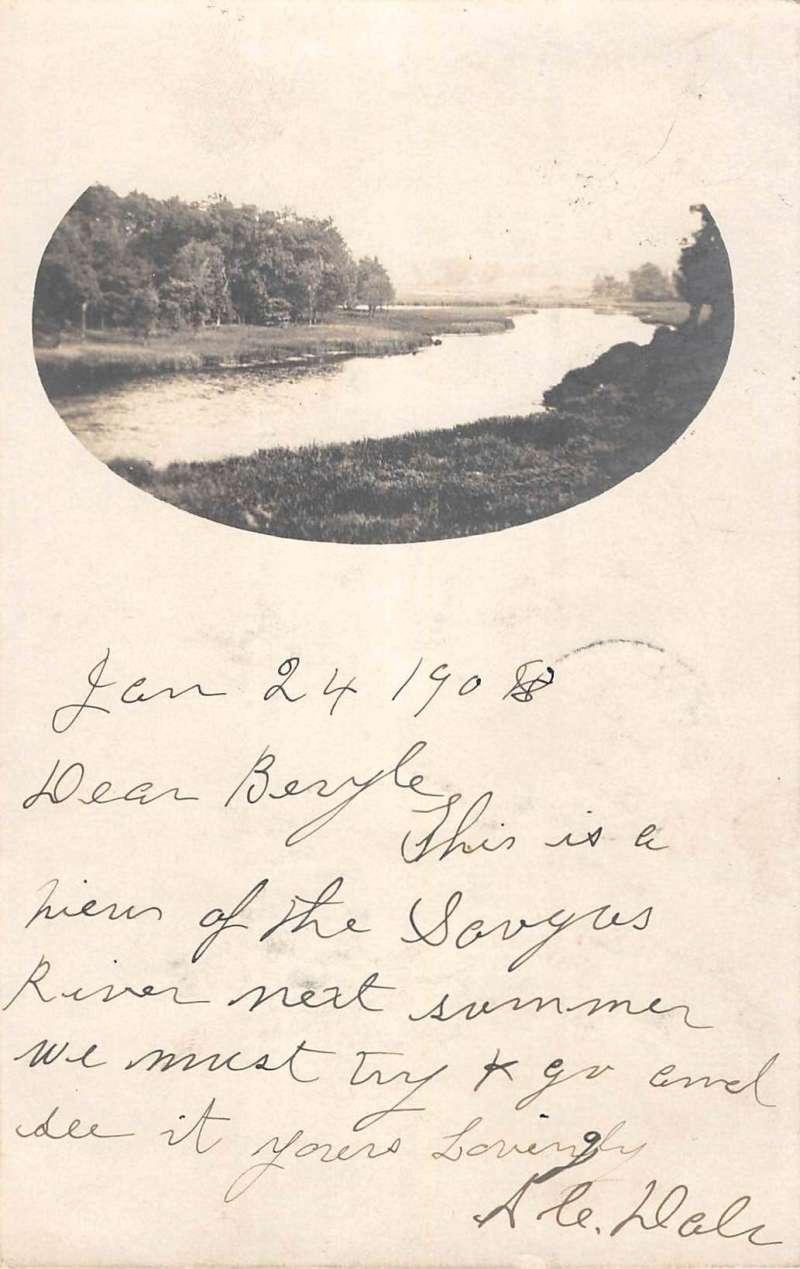 Jan 24 1908
Dear Beryle
This is a
view of the Saugus
River next summer
we must try & go and
see it yours Lovingly